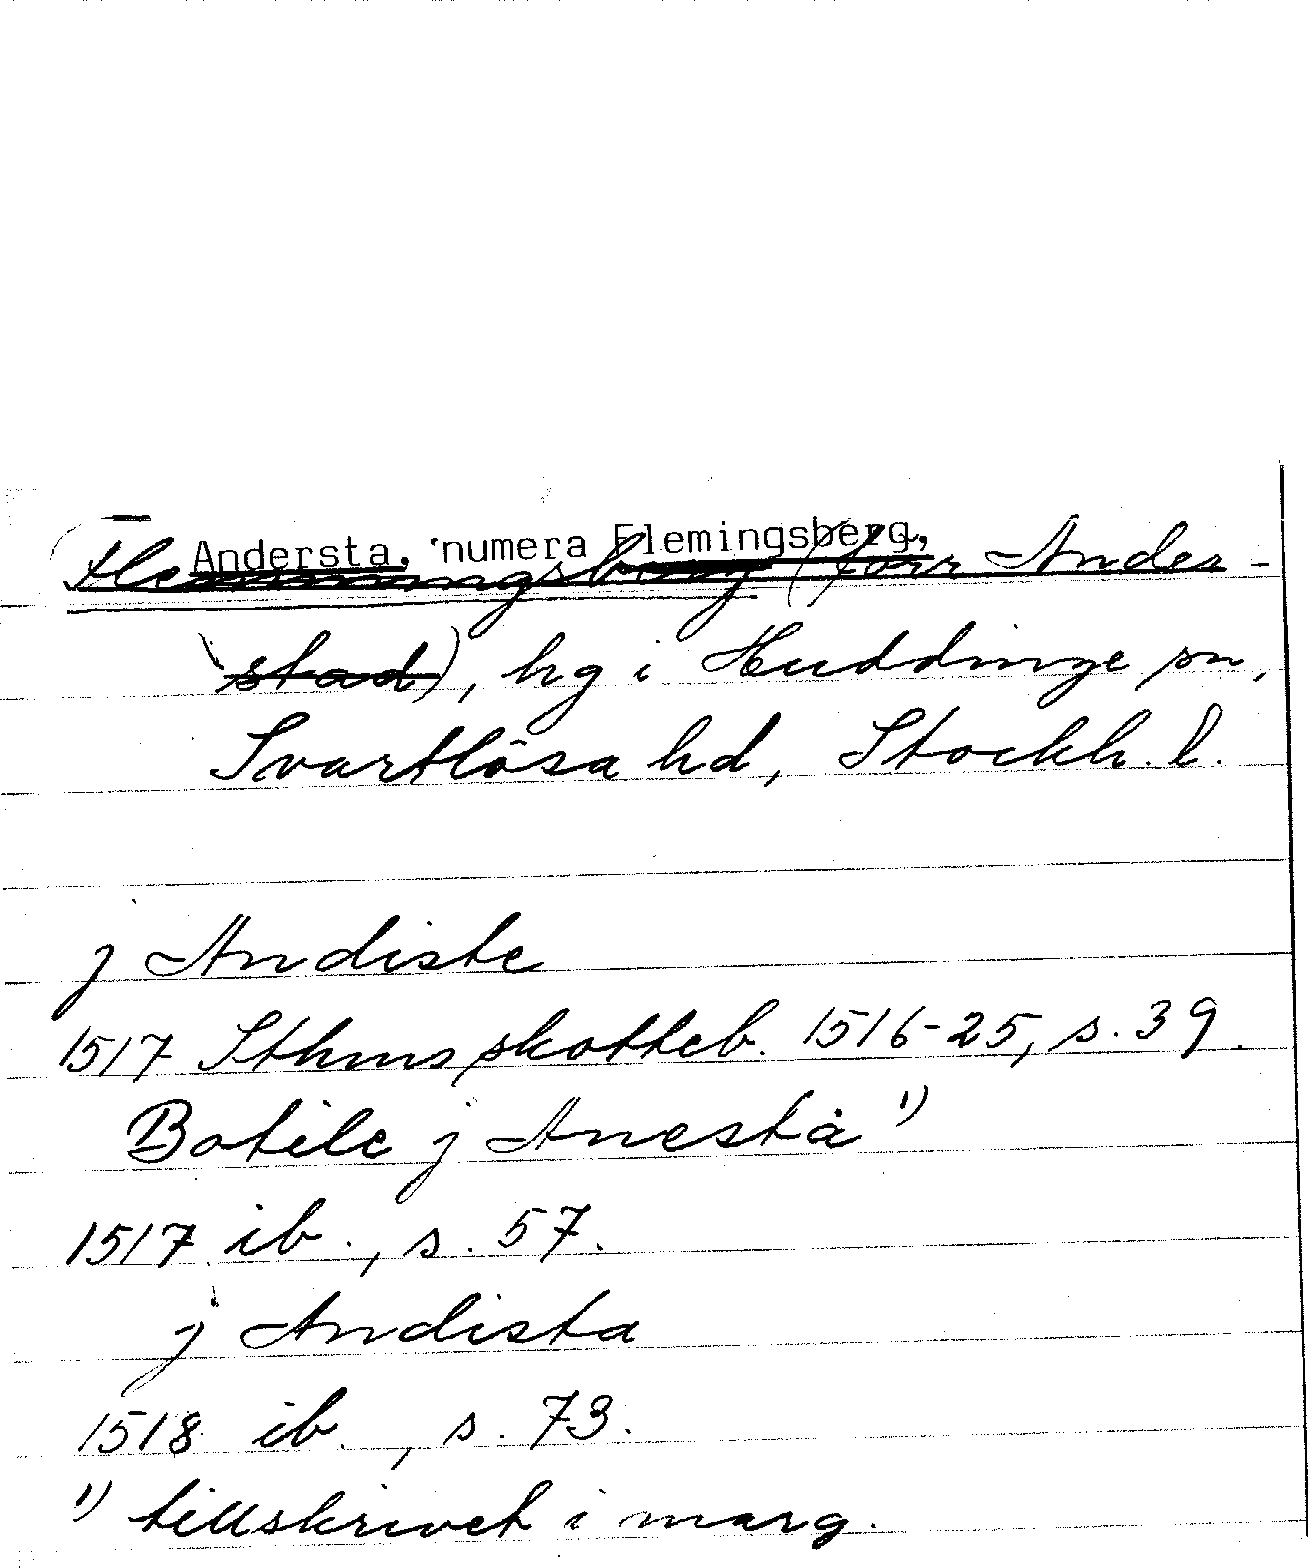 Andersta, numera Flemingsberg,
Flemmingsberg (förr Ander-
stad), hg i Huddinge sn,
Svartlösa hd, Stockh. l.
j Andiste
1517 Sthms skotteb. 1516-25, s. 39.
Botile j Anesta 1)
1517 ib., s. 57.
j Andista
1518 ib., s. 73.
1) tillskrivet i marg.